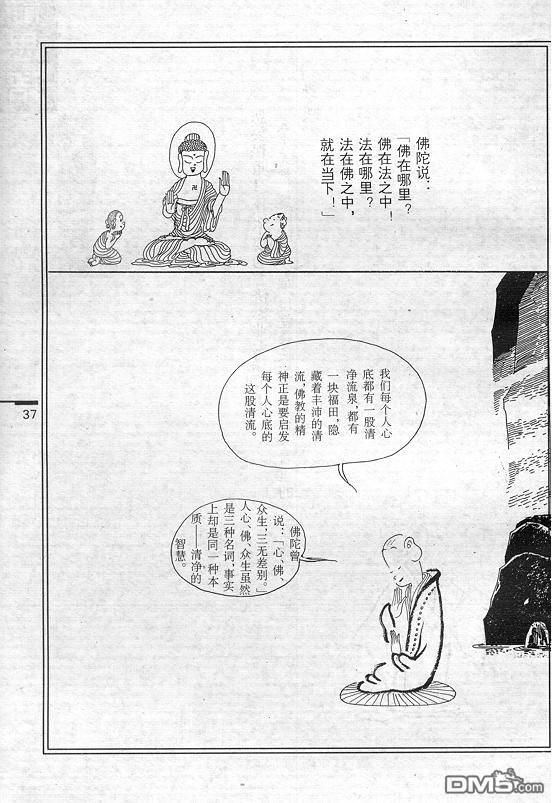 佛陀说：
「佛在哪里？
佛在法之中！
法在哪里？
法在佛之中，
就在当下！」
我们每个人心
底都有一股清
净流泉，都有
一块福田，隐
藏着丰沛的清
流，佛教的精
神正是要启发
每个人心底的
这股清流。
佛陀曾
说：「心、佛、
众生，三无差别。」
人心、佛、众生虽然
是三种名词，事实
上却是同一种本
质——清净的
智慧。
37
DM5.com